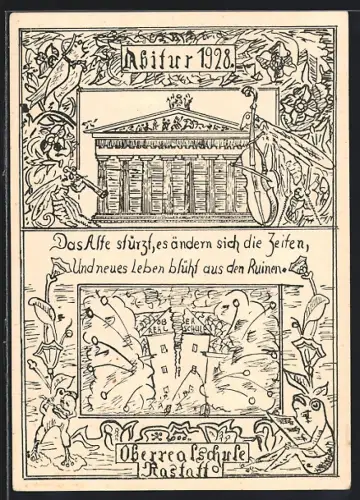 Abitur 1928.
Das Alte stürzt, es ändern sich die Zeiten,
Und neues Leben blüht aus den Ruinen.
Oberrealschule
Rastatt